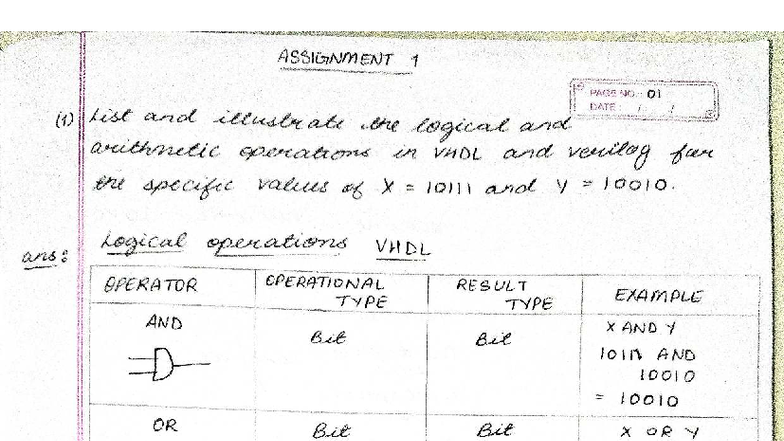 ASSIGNMENT 1
PAGE NO.: 01
DATE: / /
(1) List and illustrate the logical and
arithmetic operations in VHDL and verilog for
the specific values of X = 10111 and Y = 10010.
ans: Logical operations VHDL
OPERATOR OPERATIONAL TYPE RESULT TYPE EXAMPLE
AND Bit Bit X AND Y
10111 AND
10010
= 10010
OR Bit Bit X OR Y